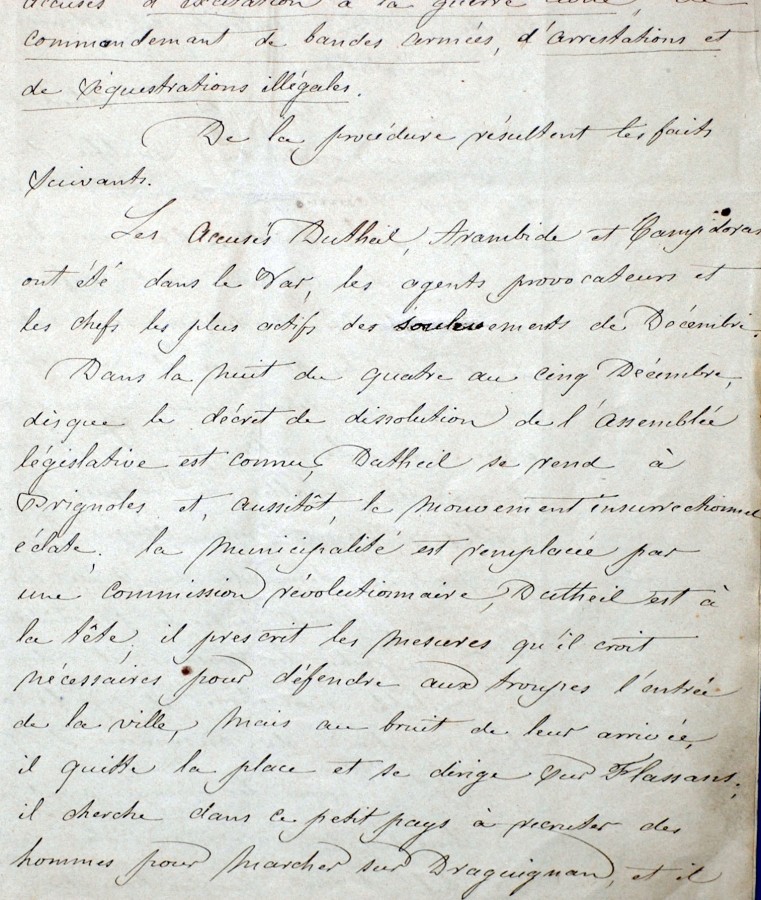 accusés d'excitation à la guerre civile, de
commandement de bandes armées, d'arrestations et
de séquestrations illégales.
De la procédure résultent les faits
suivants.
Les accusés Dutheil, Arambide et Campdoras
ont été dans le Var, les agents provocateurs et
les chefs les plus actifs des soulevements de Décembre.
Dans la nuit du quatre au cinq Décembre,
disque le décret de dissolution de l'assemblée
législative est connu, Dutheil se rend à
Brignoles et, aussitôt, le mouvement insurrectionnel
éclate. la municipalité est remplacée par
une commission révolutionnaire, Dutheil est à
la tête, il prescrit les mesures qu'il croit
nécessaires pour défendre aux troupes l'entrée
de la ville, mais au bruit de leur arrivée,
il quitte la place et se dirige sur Flassans;
il cherche dans ce petit pays à recruter des
hommes pour marcher sur Draguignan, et il